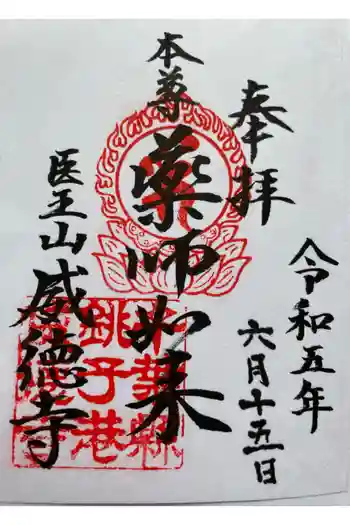 奉拝
令和五年
六月十五日
本尊
薬師如来
医王山
威徳寺
千葉縣
銚子港